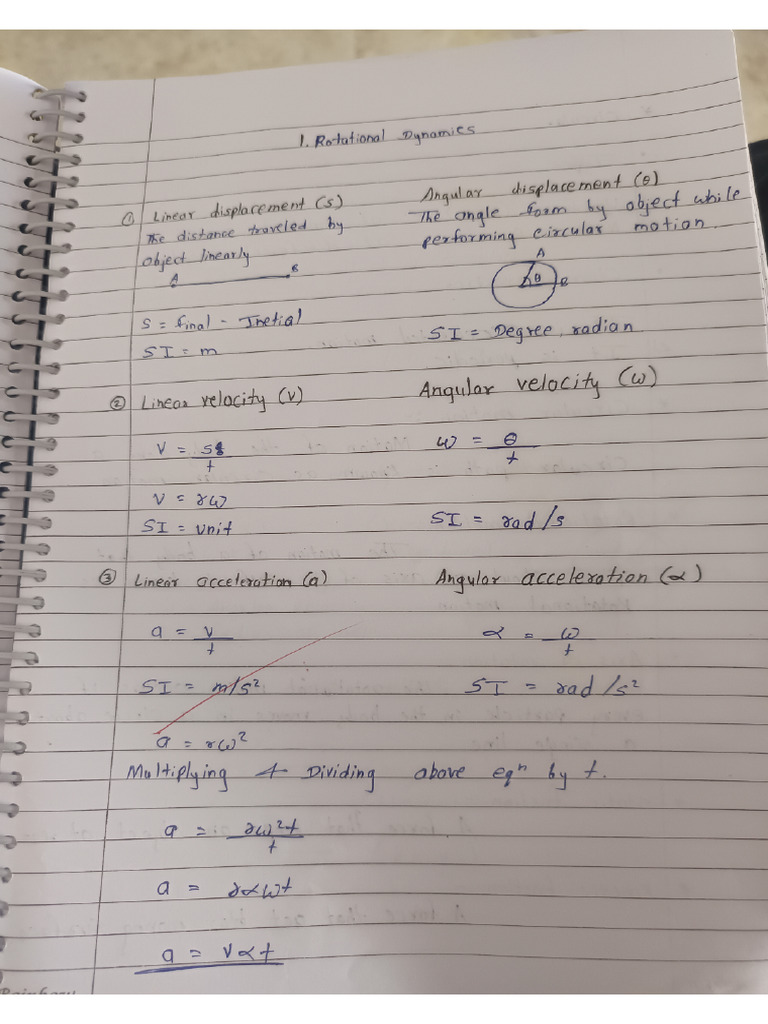 1. Rotational Dynamics
① Linear displacement (s)
The distance traveled by
object linearly
A B
s = final - Inetial
SI = m
Angular displacement (θ)
The angle form by object while
performing circular motion.
A
θ B
SI = Degree, radian
② Linear velocity (v)
v = s/t
v = rω
SI = unit
Angular velocity (ω)
ω = θ/t
SI = rad/s
③ Linear acceleration (a)
a = v/t
SI = m/s²
a = rω²
Angular acceleration (α)
α = ω/t
SI = rad/s²
Multiplying & Dividing above eqⁿ by t.
a = rω²t/t
a = rαωt
a = vαt